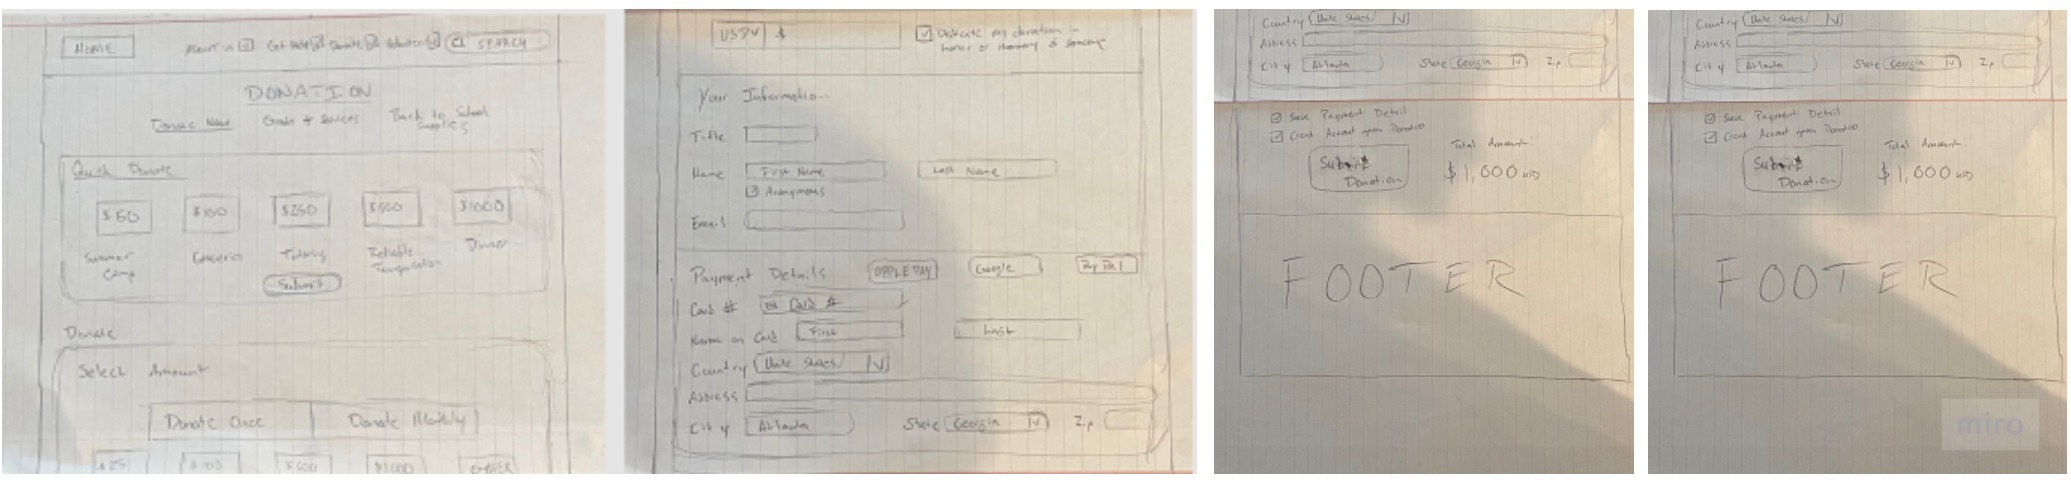 HOME
About us Get Help Donate Volunteer SEARCH
DONATION
Donate Now Goods & Services Back to School Supplies
Quick Donate
$50 $100 $250 $500 $1000
Summer Camp Groceries Tutoring Reliable Transportation Dinner
Submit
Donate
Select Amount
Donate Once Donate Monthly
$25 $100 $500 $1000
USD $
Dedicate my donation in
honor or memory of someone
Your Information
Title
Name First Name Last Name
Anonymous
Email
Payment Details APPLE PAY Google Pay Pal
Card # Card #
Name on Card First Last
Country Unite States
Address
City Atlanta State Georgia Zip
Country Unite States
Address
City Atlanta State Georgia Zip
Save Payment Detail
Creat Account upon Donatio
Total Amount:
Submit
Donation
$1,000 USD
FOOTER
Country Unite States
Address
City Atlanta State Georgia Zip
Save Payment Detail
Creat Account upon Donatio
Total Amount:
Submit
Donation
$1,000 USD
FOOTER
miro